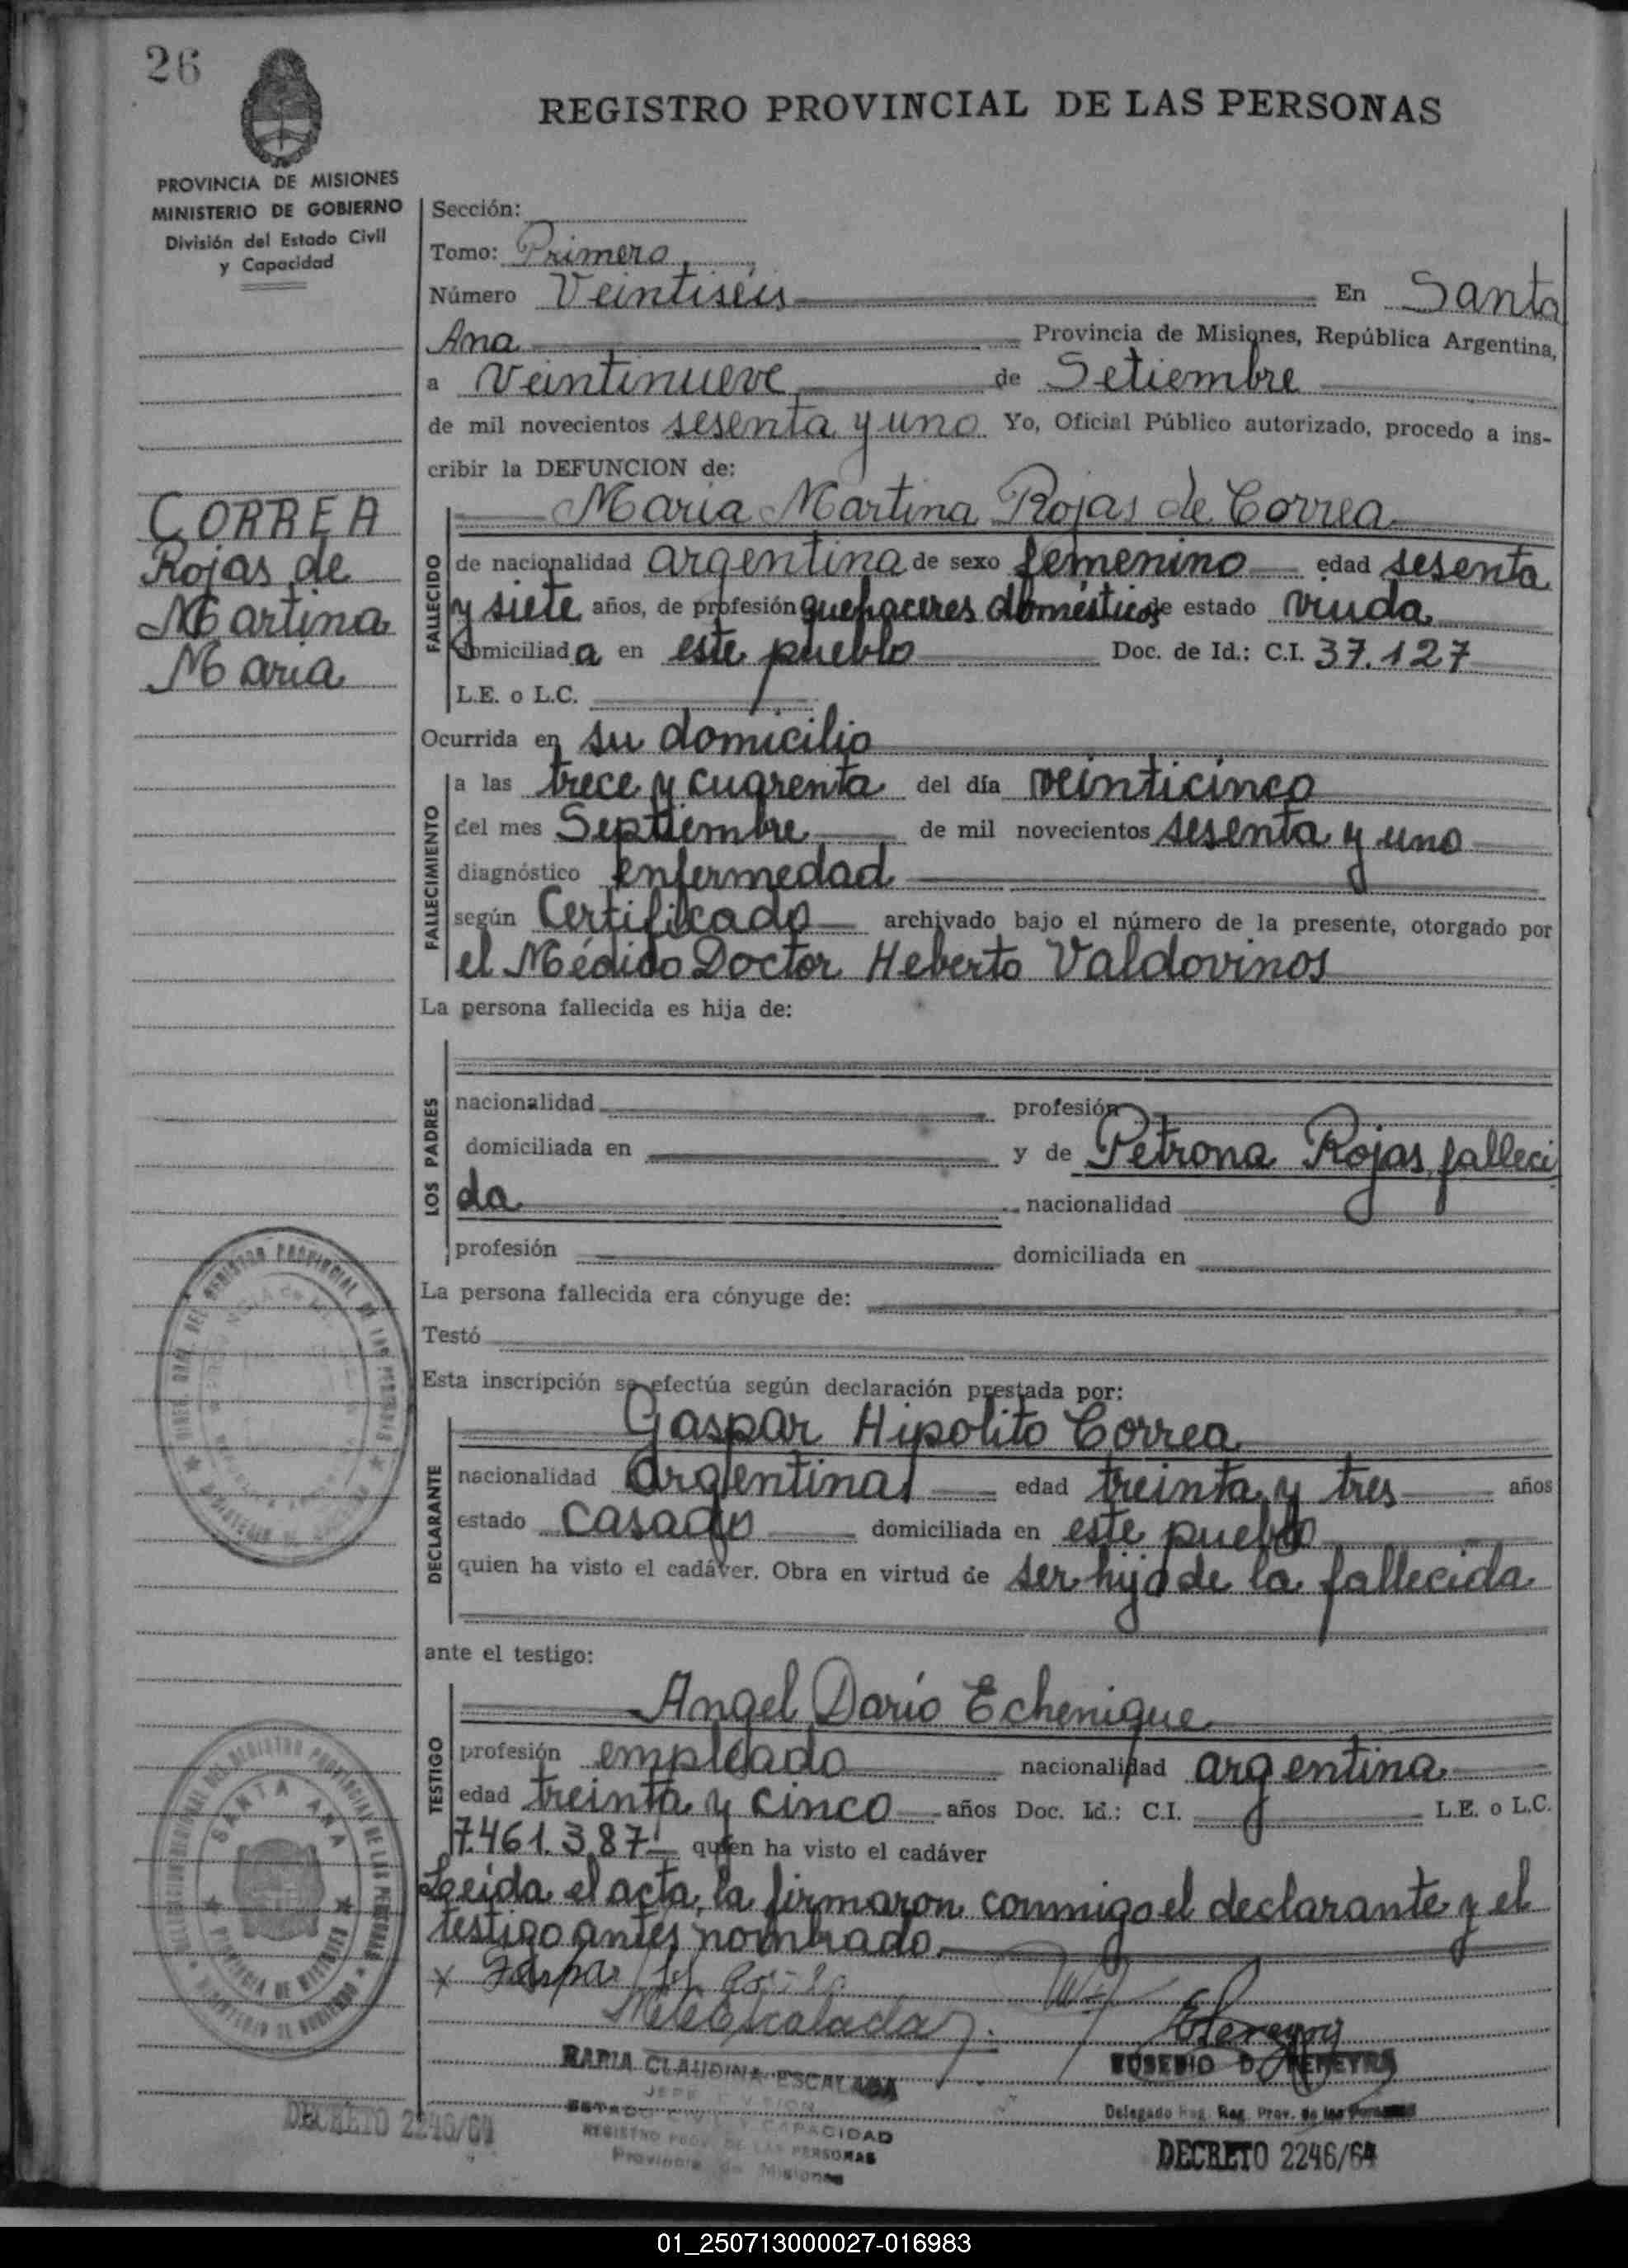 26
REGISTRO PROVINCIAL DE LAS PERSONAS
PROVINCIA DE MISIONES
MINISTERIO DE GOBIERNO
División del Estado Civil
y Capacidad
CORREA
Rojas de
Martina
Maria
Sección:
Tomo: Primero
Número Veintiséis En Santa
Ana Provincia de Misiones, República Argentina,
a Veintinueve de Setiembre
de mil novecientos sesenta y uno Yo, Oficial Público autorizado, procedo a ins-
cribir la DEFUNCION de:
Maria Martina Rojas de Correa
FALLECIDO
de nacionalidad argentina de sexo femenino edad sesenta
y siete años, de profesión quehaceres domésticos de estado viuda
domiciliada en este pueblo Doc. de Id.: C.I. 37.127
L.E. o L.C.
Ocurrida en su domicilio
FALLECIMIENTO
a las trece y cuarenta del día veinticinco
del mes Septiembre de mil novecientos sesenta y uno
diagnóstico enfermedad
según Certificado archivado bajo el número de la presente, otorgado por
el Médido Doctor Heberto Valdovinos
La persona fallecida es hija de:
LOS PADRES
nacionalidad profesión
domiciliada en y de Petrona Rojas, falleci
da nacionalidad
profesión domiciliada en
La persona fallecida era cónyuge de:
Testó
Esta inscripción se efectúa según declaración prestada por:
Gaspar Hipolito Correa
DECLARANTE
nacionalidad Argentina edad treinta y tres años
estado casado domiciliada en este pueblo
quien ha visto el cadáver. Obra en virtud de ser hijo de la fallecida
ante el testigo:
Angel Darío Echenique
TESTIGO
profesión empleado nacionalidad argentina
edad treinta y cinco años Doc. Id.: C.I. L.E. o L.C.
7.461.387 quien ha visto el cadáver
Leeida el acta, la firmaron conmigo el declarante y el
testigo antes nombrado.
x Gaspar
MARIA CLAUDINA ESCALADA
JEFE DIVISION
ESTADO CIVIL Y CAPACIDAD
REGISTRO PROV. DE LAS PERSONAS
Provincia de Misiones
EUSEBIO D. PEREYRA
Delegado Reg. Prov. de las Personas
DECRETO 2246/64
DECRETO 2246/64
SANTA ANA
PROVINCIA DE MISIONES
MINISTERIO DE GOBIERNO
01_250713000027-016983